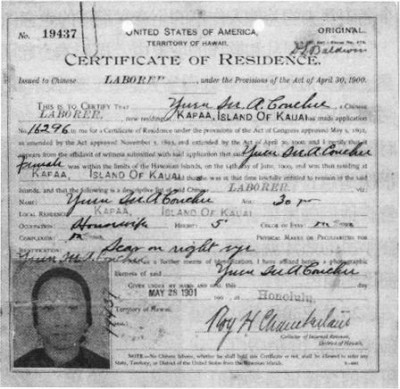 No. 19437
UNITED STATES OF AMERICA,
ORIGINAL.
TERRITORY OF HAWAII.
CERTIFICATE OF RESIDENCE.
Issued to Chinese LABORER, under the Provisions of the Act of April 30, 1900.
THIS IS TO CERTIFY THAT Yuen See A. Conchee, a Chinese
LABORER, now residing KAPAA, ISLAND OF KAUAI has made application
No. 16296 to me for a Certificate of Residence under the provisions of the Act of Congress approved May 5, 1892,
as amended by the Act approved November 3, 1893, and extended by the Act of April 30, 1900, and I certify that it
appears from the affidavit of witness submitted with said application that said Yuen See A. Conchee
female was within the limits of the Hawaiian Islands, on the day of June, 1900, and was then residing at
KAPAA, ISLAND OF KAUAI and that he was at that time lawfully entitled to remain in the said
Islands, and that the following is a descriptive list of said Chinese LABORER viz:
NAME: Yuen See A. Conchee AGE: 30
LOCAL RESIDENCE: KAPAA, ISLAND OF KAUAI
OCCUPATION: Housewife HEIGHT: 5' COLOR OF EYES:
COMPLEXION: PHYSICAL MARKS OR PECULIARITIES FOR
IDENTIFICATION: Scar on right eye
Yuen See A. Conchee as a further means of identification, I have affixed hereto a photographic
likeness of said Yuen See A. Conchee
GIVEN UNDER MY HAND AND SEAL this
MAY 28 1901 at Honolulu,
Territory of Hawaii.
Roy H. Chamberlain
Collector of Internal Revenue,
District of Hawaii.